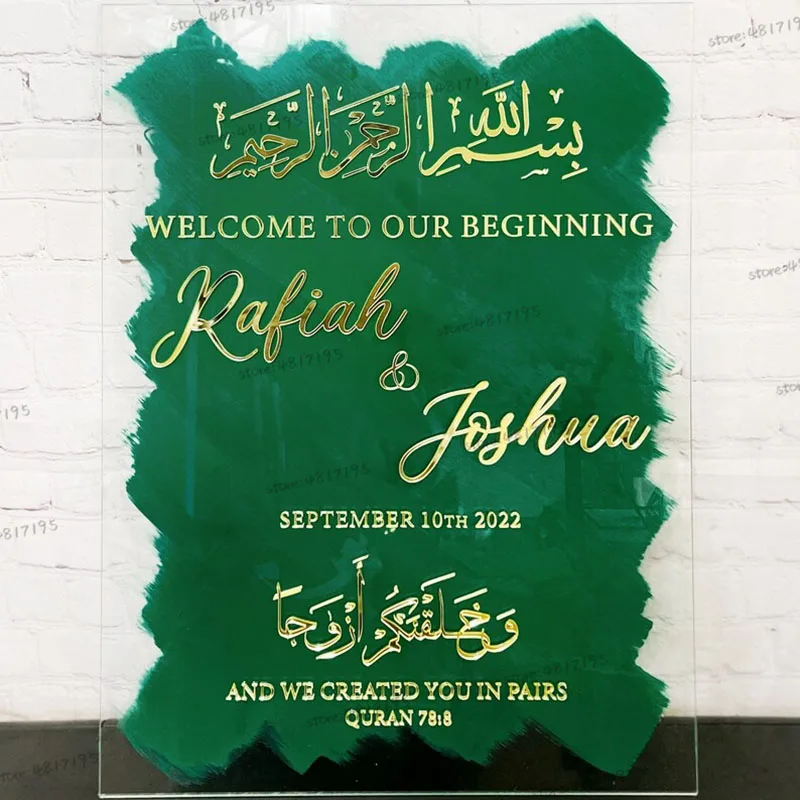 بسم الله الرحمن الرحيم
WELCOME TO OUR BEGINNING
Rafiah
&
Joshua
SEPTEMBER 10TH 2022
وَخَلَقْنَٰكُمْ أَزْوَٰجًا
AND WE CREATED YOU IN PAIRS
QURAN 78:8
store:4817195
store:4817195
store:4817195
store:4817195
store:4817195
store:4817195